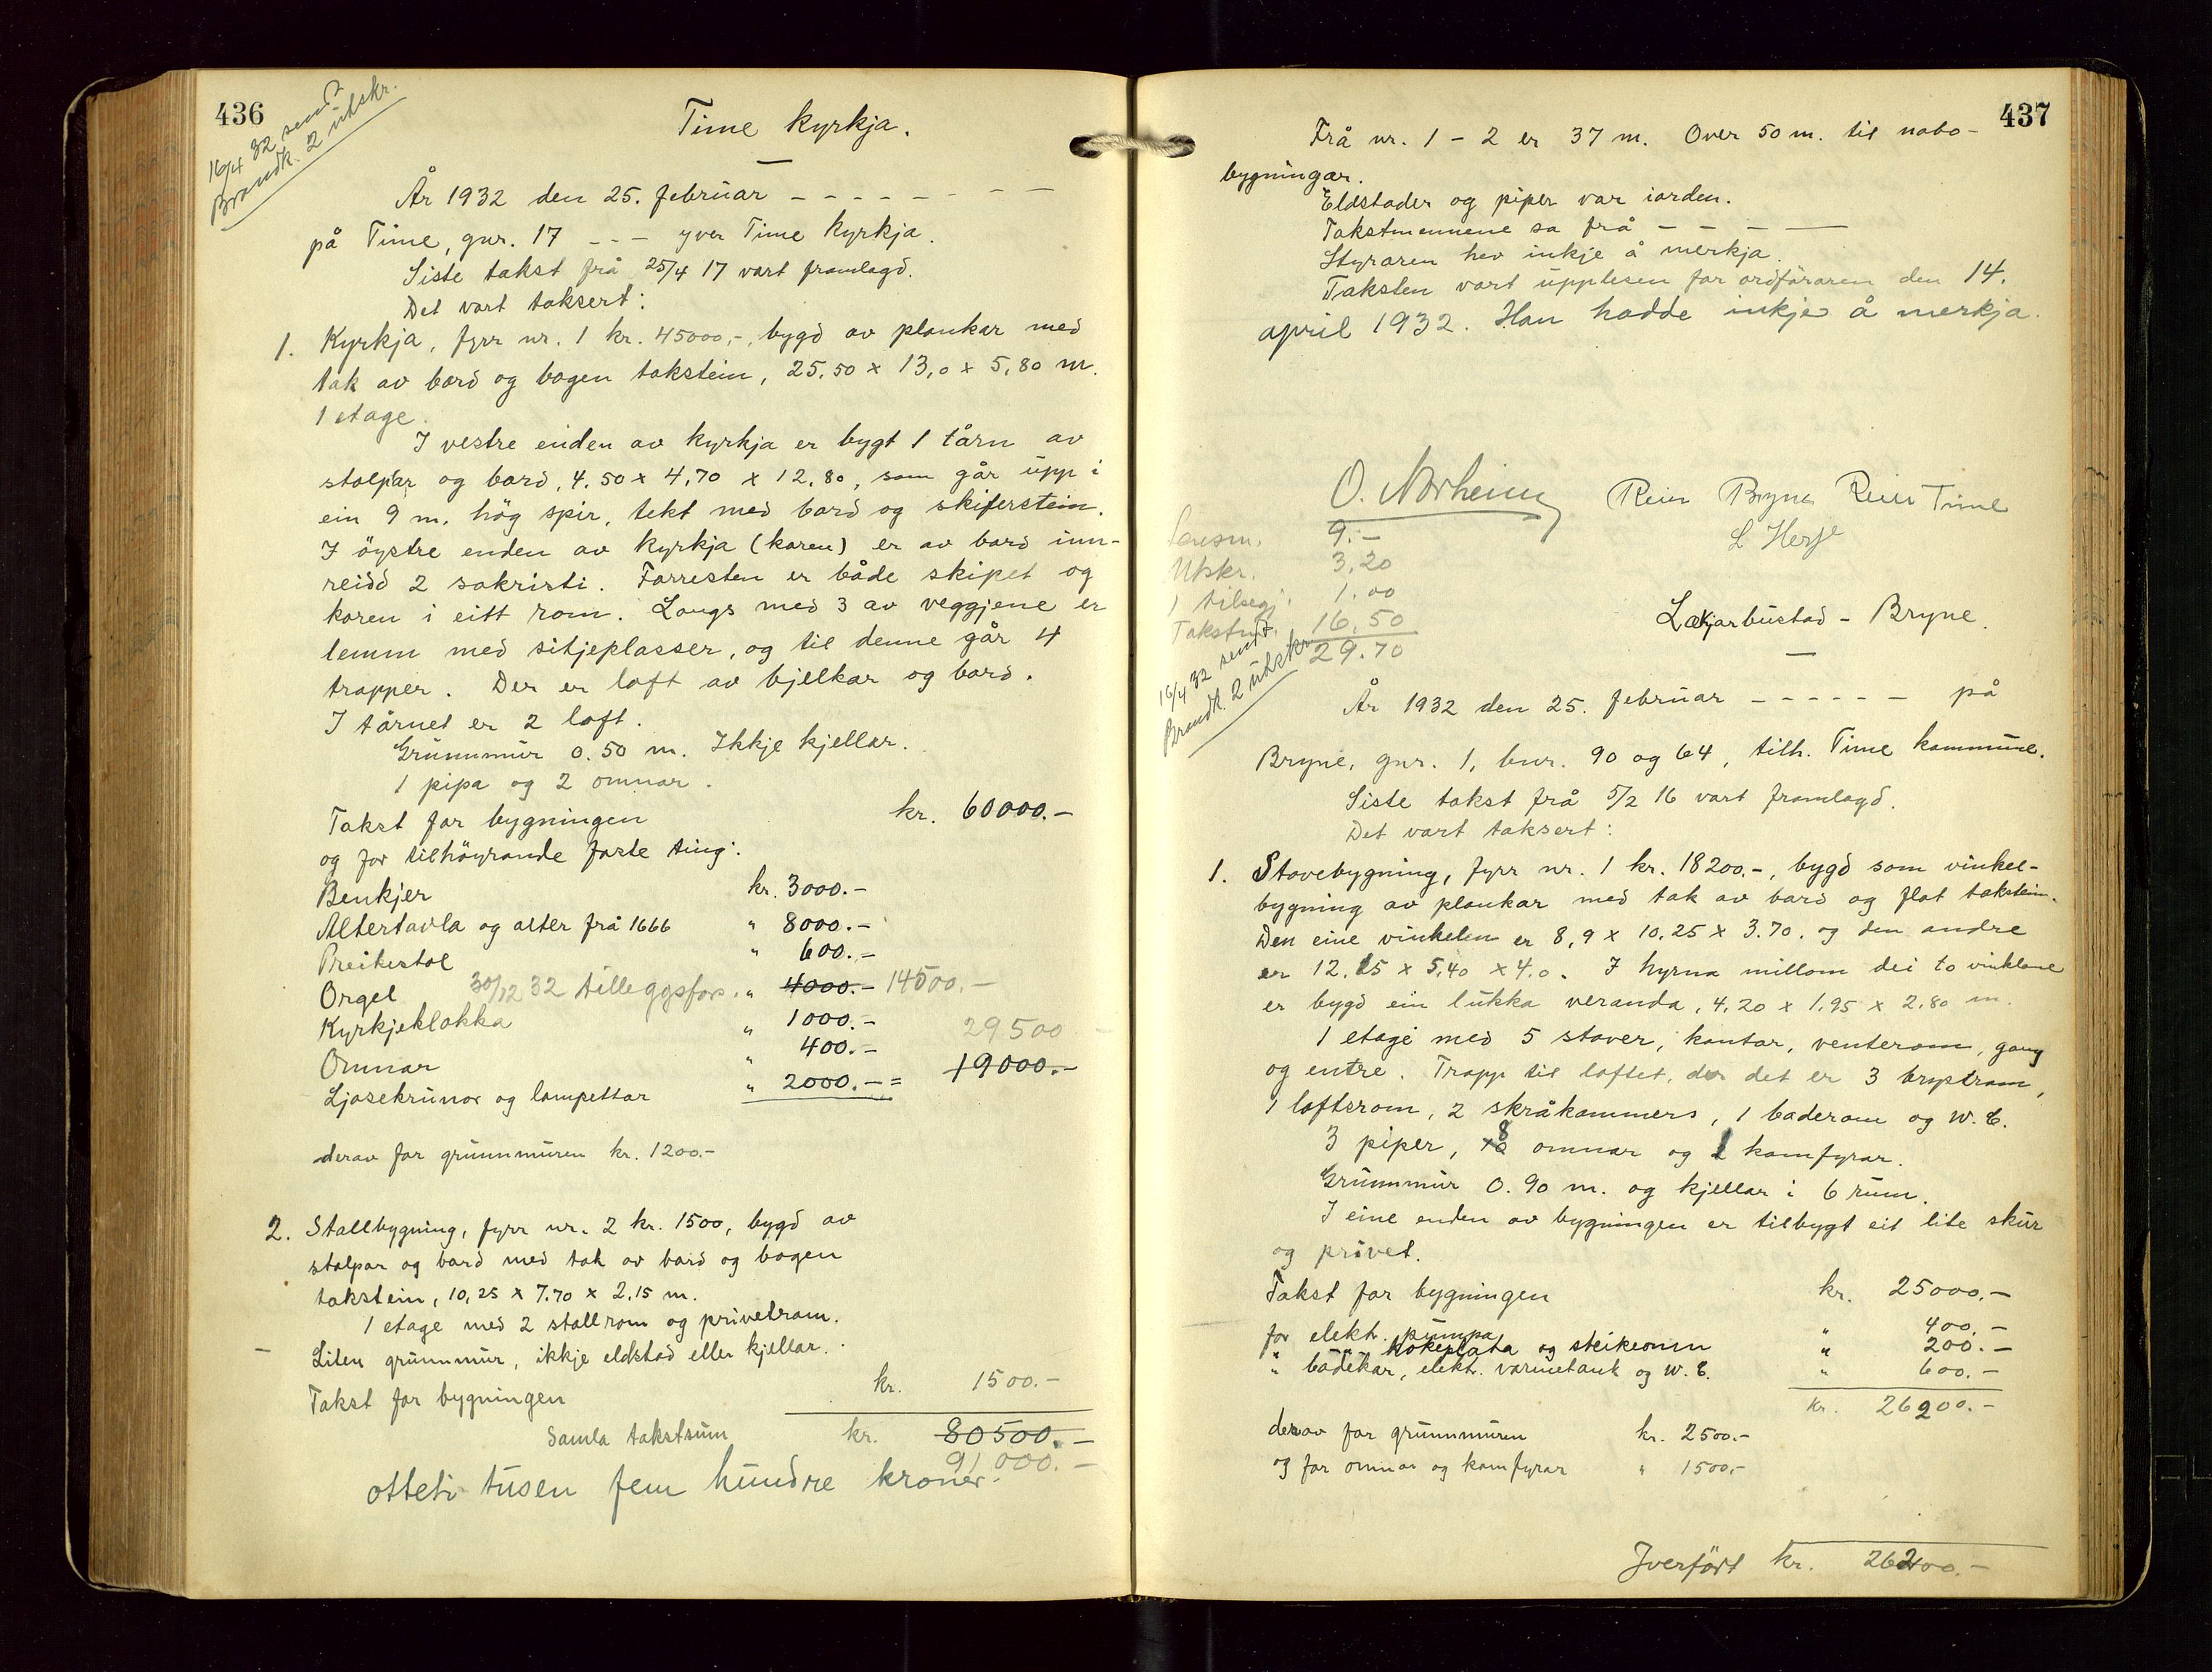 436
16/4 32 sendt
Brandk. 2 utskr.
Time kyrkja.
År 1932 den 25. februar - - - - - - -
på Time, gnr. 17 - - - yver Time kyrkja.
Siste takst frå 25/4 17 vart framlagd.
Det vart taksert:
1. Kyrkja, fyrr nr. 1 kr. 45000,-, bygd av plankar med
tak av bord og bogen takstein, 25.50 x 13,0 x 5,80 m.
1 etage.
I vestre enden av kyrkja er bygt 1 tårn av
stolpar og bord, 4.50 x 4,70 x 12,80, som går upp i
ein 9 m. hög spir, tekt med bord og skiferstein.
I öystre enden av kyrkja (koren) er av bord inn-
reidd 2 sakristi. Forresten er både skipet og
koren i eitt rom. Langs med 3 av veggjene er
lemm med sitjeplasser, og til denne går 4
trapper. Der er loft av bjelkar og bord.
I tårnet er 2 loft.
Grunnmur 0.50 m. Ikkje kjellar.
1 pipa og 2 omnar.
Takst for bygningen kr. 60000.-
og for tilhöyrande faste ting:
Benkjer kr. 3000.-
Altertavla og alter frå 1666 " 8000.-
Preikestol " 600.-
Orgel 30/12 32 tilleggsfors. " 4000.- 14500.-
Kyrkjeklokka " 1000.- 29500
Omnar " 400.-
Ljosekrunor og lampettar " 2000.- = 19000.-
derav for grunnmuren kr. 1200.-
2. Stallbygning, fyrr nr. 2 kr. 1500, bygd av
stolpar og bord med tak av bord og bogen
takstein, 10,25 x 7.70 x 2.15 m.
1 etage med 2 stallrom og privetrom.
Liten grunnmur, ikkje eldstad eller kjellar.
Takst for bygningen kr. 1500.-
Samla takstsum kr. 80500.-
91000.-
otteti tusen fem hundre kroner.
437
Frå nr. 1 - 2 er 37 m. Over 50 m. til nabo-
bygningar.
Eldstader og piper var iorden.
Takstmennene sa frå - - - -
Styraren hev inkje å merkja.
Taksten vart upplesen for ordföraren den 14.
april 1932. Han hadde inkje å merkja.
O. Norheim Reier Bryne Reier Time
L Herje
Lensm. 9.-
Utskr. 3,20
1 tilsegj. 1.00
Takstm. 16,50
29.70
16/4 32 sendt
Brandk. 2 utskr.
Lækjarbustad - Bryne.
År 1932 den 25. februar - - - - - på
Bryne, gnr. 1, bnr. 90 og 64, tilh. Time kommune.
Siste takst frå 5/2 16 vart framlagd.
Det vart taksert:
1. Stovebygning, fyrr nr. 1 kr. 18200.-, bygd som vinkel-
bygning av plankar med tak av bord og flat takstein.
Den eine vinkelen er 8,9 x 10.25 x 3.70. og den andre
er 12.15 x 5.40 x 4.0. I hyrna millom dei to vinklane
er bygd ein lukka veranda, 4,20 x 1,95 x 2,80 m.
1 etage med 5 stover, kontor, venterom, gang
og entre. Trapp til loftet, der det er 3 brystrom,
1 loftsrom, 2 skråkammers, 1 baderom og W. C.
3 piper, 8 omnar og 1 komfyrar.
Grunnmur 0.90 m. og kjellar i 6 rum.
I eine enden av bygningen er tilbygt eit lite skur
og privet.
Takst for bygningen kr. 25000.-
for elekt. pumpa " 400.-
" " kokeplata og steikeomn " 200.-
" badekar, elekt. varmetank og W. C. " 600.-
kr. 26200.-
derav for grunnmuren kr. 2500.-
og for omnar og komfyrar " 1500.-
Yverfört kr. 26200.-